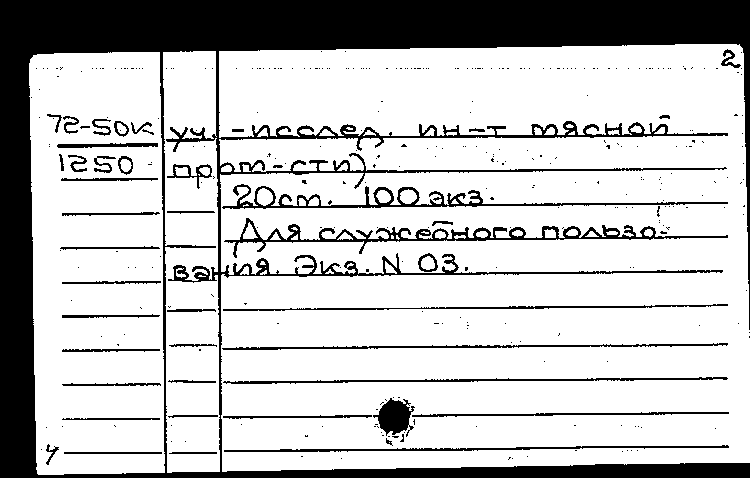 2
72-50к уч. -исслед. ин-т мясной
1250 пром-сти).
20 ст. 100 экз.
Для служебного пользо-
вания. Экз. N 03.
4